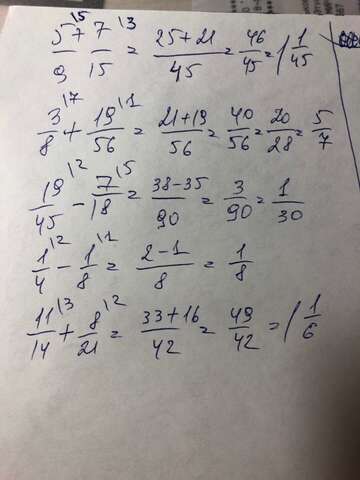 5/9 \5 + 7/15 \3 = (25+21)/45 = 46/45 = 1 1/45
3/8 \7 + 19/56 \1 = (21+19)/56 = 40/56 = 20/28 = 5/7
19/45 \2 - 7/18 \5 = (38-35)/90 = 3/90 = 1/30
1/4 \2 - 1/8 \1 = (2-1)/8 = 1/8
11/14 \3 + 8/21 \2 = (33+16)/42 = 49/42 = 1 1/6